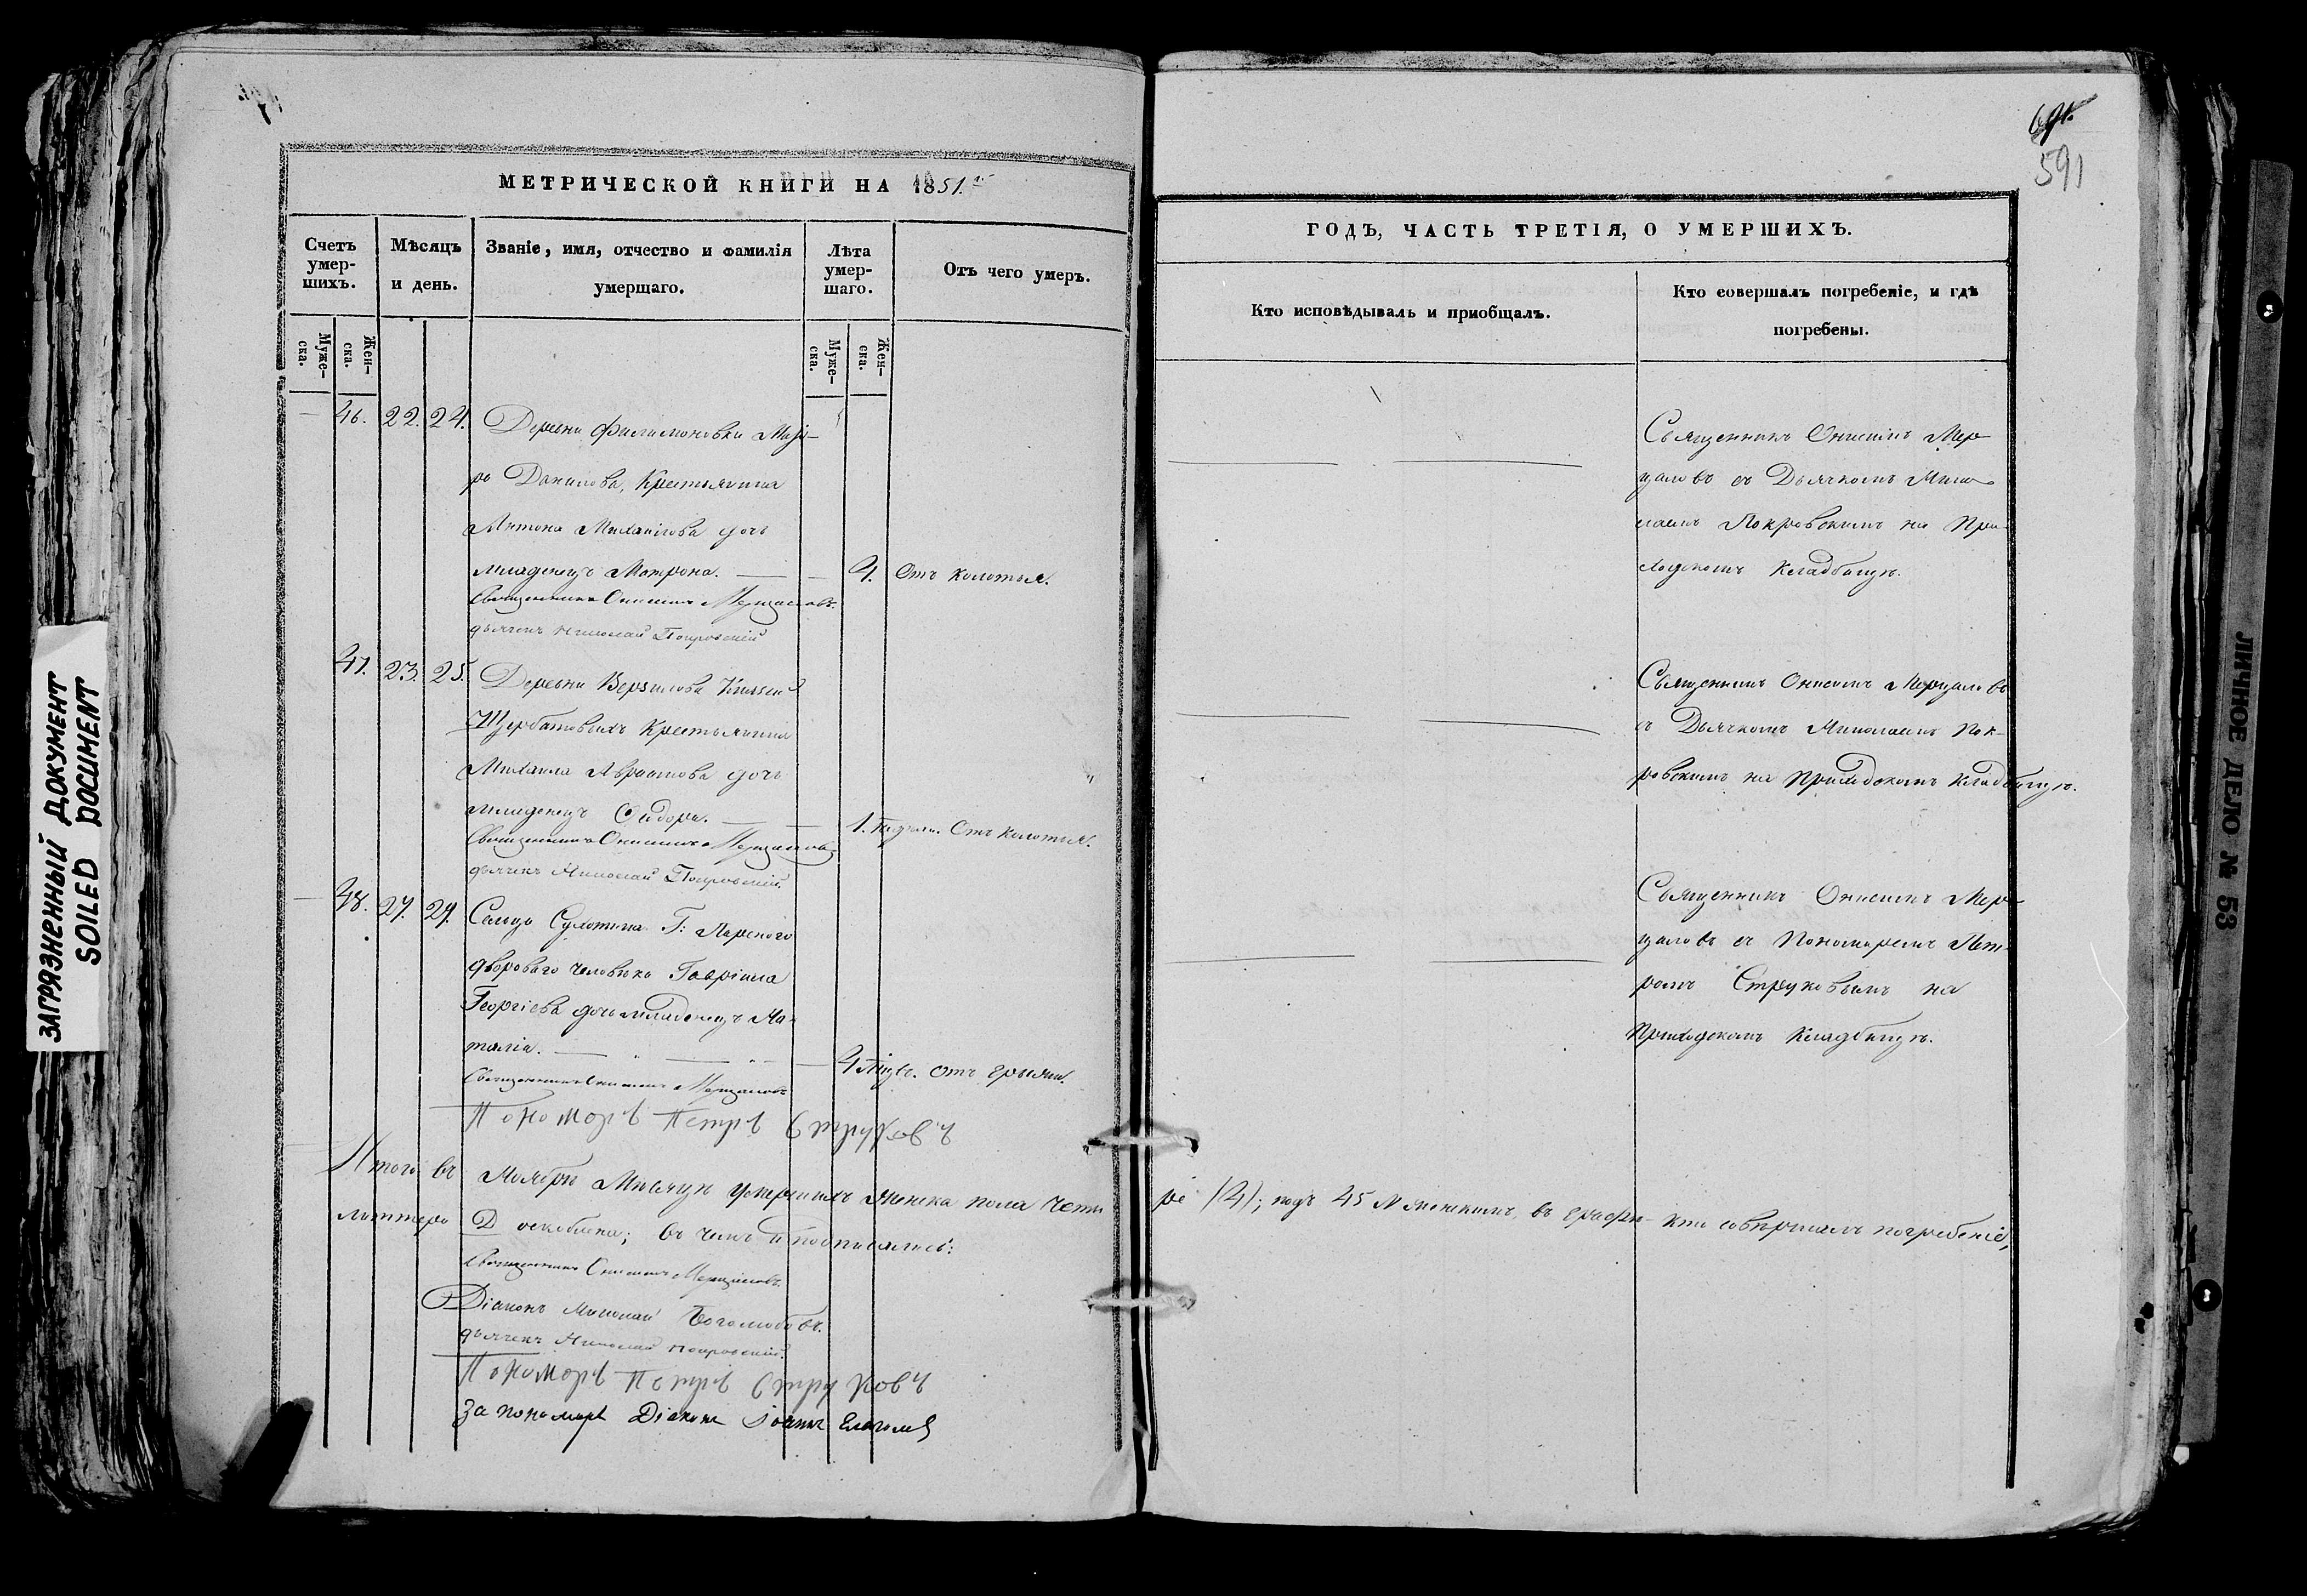 МЕТРИЧЕСКОЙ КНИГИ НА 1851.
Счетъ умер- шихъ.
Мѣсяцъ и день.
Званіе, имя, отчество и фамилія умершаго.
Лѣта умер- шаго.
Отъ чего умеръ.
Муже- ска.
Жен- ска.
Муже- ска.
Жен- ска.
46. 22. 24. Деревни Филимоновки Маіо-
ра Данилова, Крестьянина
Антона Михаилова дочь
младенецъ Матрона. 4. Отъ колотья.
Священникъ Онисимъ Мерцаловъ.
дьячекъ Николай Покровскій
47. 23. 25. Деревни Верзилова Князей
Щербатовыхъ Крестьянина
Михаила Авраамова дочь
младенецъ Сидора. 1. Отъ колотья.
Священникъ Онисимъ Мерцаловъ
дьячекъ Николай Покровскій.
48. 27. 29. Сельца Сухотина Г:
двороваго человѣка Гавріила
Георгіева дочь младенецъ На-
талія. 4 отъ грыжи.
Священникъ Онисимъ Мерцаловъ
Пономарь Петръ Струковъ
Итого въ Ноябрѣ Мѣсяцѣ умершихъ женска пола четы
литтера Д оскоблена; въ чемъ и подписались:
Священникъ Онисимъ Мерцаловъ.
Діаконъ Николай Боголюбовъ.
дьячекъ Николай Покровскій.
Пономарь Петръ Струковъ
За пономаря Діаконъ Іоаннъ
691.
591
ГОДЪ, ЧАСТЬ ТРЕТІЯ, О УМЕРШИХЪ.
Кто исповѣдывалъ и пріобщалъ.
Кто совершалъ погребеніе, и гдѣ погребены.
Священникъ Онисимъ Мер-
цаловъ съ Дьячкомъ Нико-
лаемъ Покровскимъ на При-
ходскомъ Кладбищѣ.
Священникъ Онисимъ Мерцаловъ
съ Дьячкомъ Николаемъ Пок-
ровскимъ на Приходскомъ Кладбищѣ.
Священникъ Онисимъ Мер-
цаловъ съ Пономаремъ Пет-
ромъ Струковымъ на
Приходскомъ Кладбищѣ.
ре (4); подъ 45 № женскимъ, въ графѣ - кто совершалъ погребеніе,
ЗАГРЯЗНЕННЫЙ ДОКУМЕНТ
SOILED DOCUMENT
ЛИЧНОЕ ДЕЛО № 53